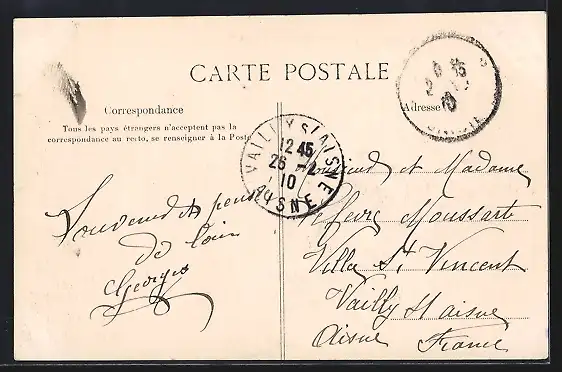 CARTE POSTALE
Correspondance
Tous les pays étrangers n'acceptent pas la
correspondance au recto, se renseigner à la Poste
Adresse
VAILLY S/ AISNE
12 45
26 - 2
10
AISNE
Souvenir et pensée
de loin
Georges
Monsieur et Madame
Moussart
Villa St Vincent
Vailly s/ aisne
Aisne France